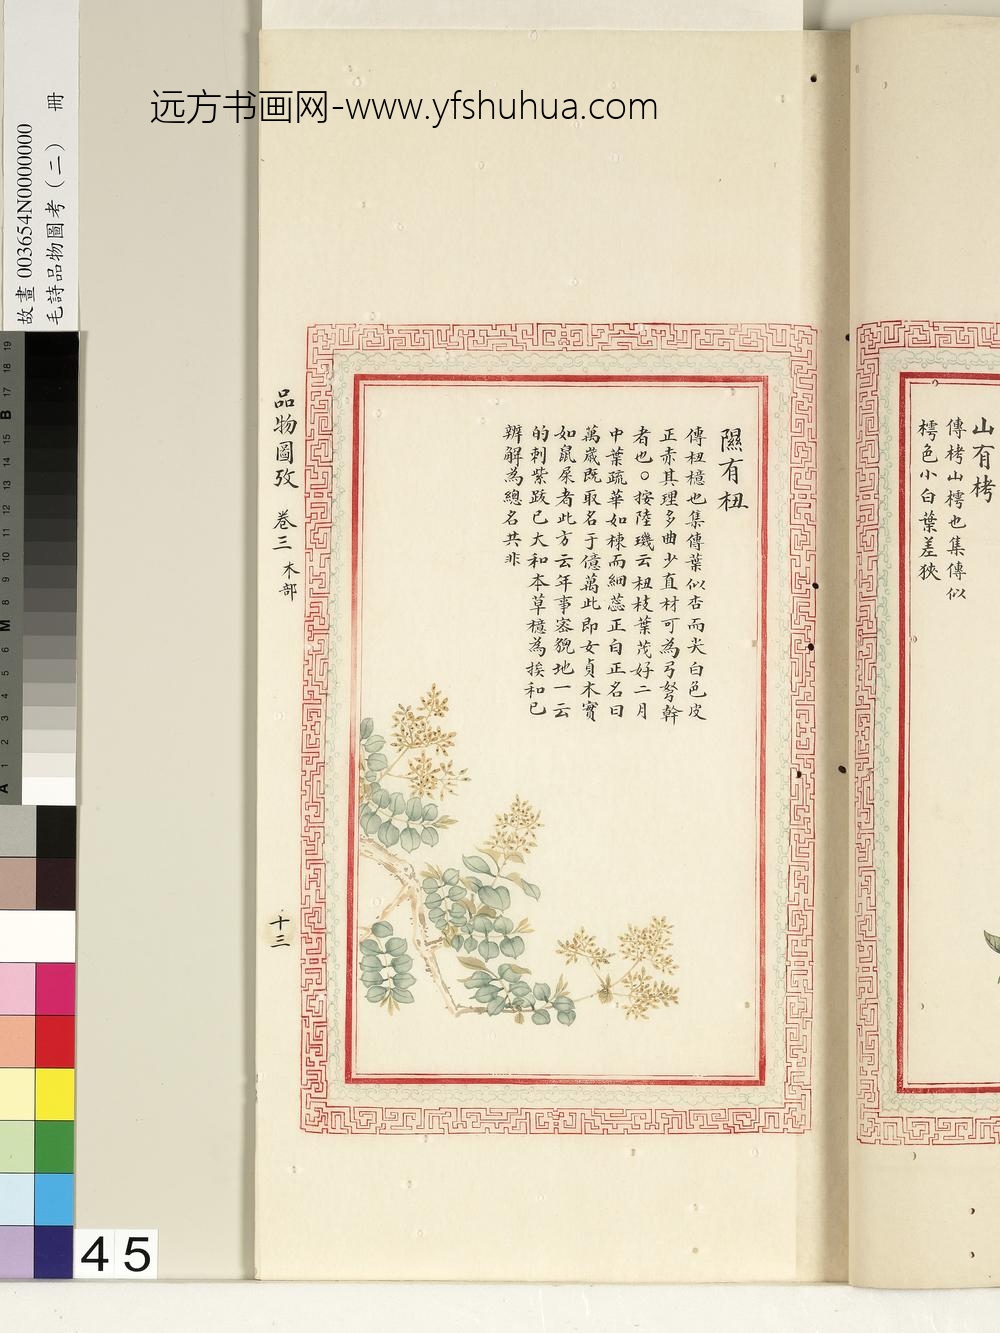 远方书画网-www.yfshuhua.com
故畫 003654N0000000
毛詩品物圖考（二） 冊
山有栲
傳栲山樗也集傳似
樗色小白葉差狹
隰有杻
傳杻檍也集傳葉似杏而尖白色皮
正赤其理多曲少直材可為弓弩幹
者也○按陸璣云杻枝葉茂好二月
中葉疏華如楝而細蕊正白正名曰
萬歲既取名于億萬此即女貞木實
如鼠屎者此方云年事客貌地一云
的刺紫跋已大和本草檍為挨和已
辨解為總名共非
品物圖攷 卷三 木部
十三
19 18 17 B 15 14 13 12 11 10 9 8 M 6 5 4 3 2 1 A
45